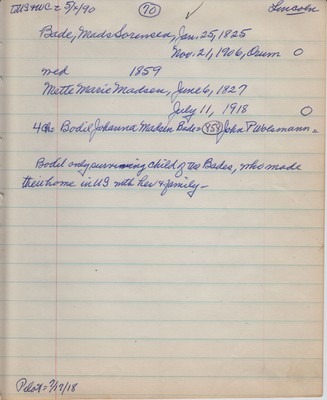 70 Lincoln
Bade, Mads Sorensen, Jan. 25, 1825
Nov. 21, 1906, Orum O
wed 1859
Mette Marie Madsen, June 6, 1827
July 11, 1918 O
4 Ch: Bodil Johanna Bade = 454 John P.
Bodil only surviving child of the Bades, who made
their home in US with her & family -
Pilot = 7/17/18